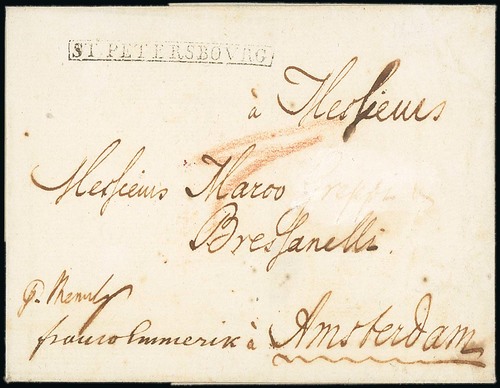 ST. PETERSBOVRG
à Messieurs
Messieurs Marco
Bressanelli.
p. Memel
franco Emmerik à Amsterdam